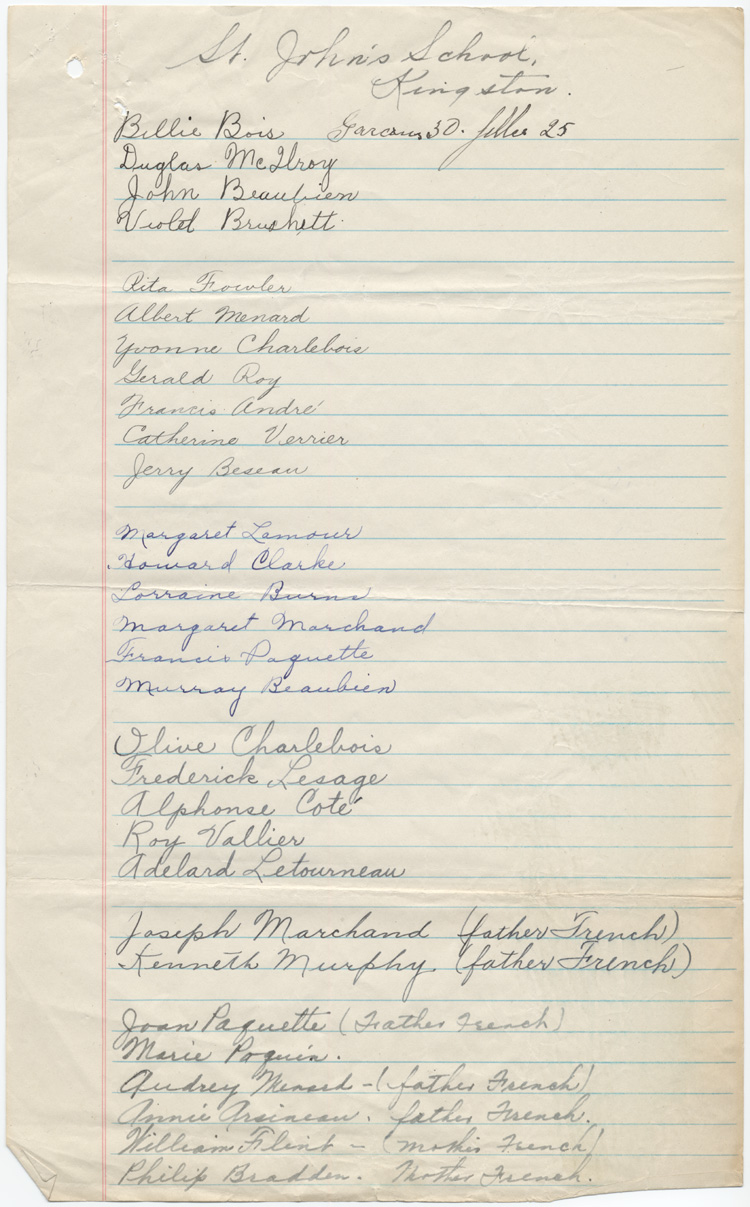 St. John's School,
Kingston.
Billie Bois Garcons 30. filles 25
Duglas McIlroy
John Beaubien
Violet Brushett.
Rita Fowler
Albert Menard
Yvonne Charlebois
Gerald Roy
Francis André
Catherine Verrier
Jerry Beseau
Margaret Lamour
Howard Clarke
Lorraine Burns
Margaret Marchand
Francis Paquette
Murray Beaubien
Olive Charlebois
Frederick Lesage
Alphonse Coté
Roy Vallier
Adelard Letourneau
Joseph Marchand (father French)
Kenneth Murphy (father French)
Joan Paquette (Father French)
Marie Poquin.
Audrey Menard - (father French)
Annie Arsineau. father French.
William Flint - (mother French)
Philip Bradden. Mother French.